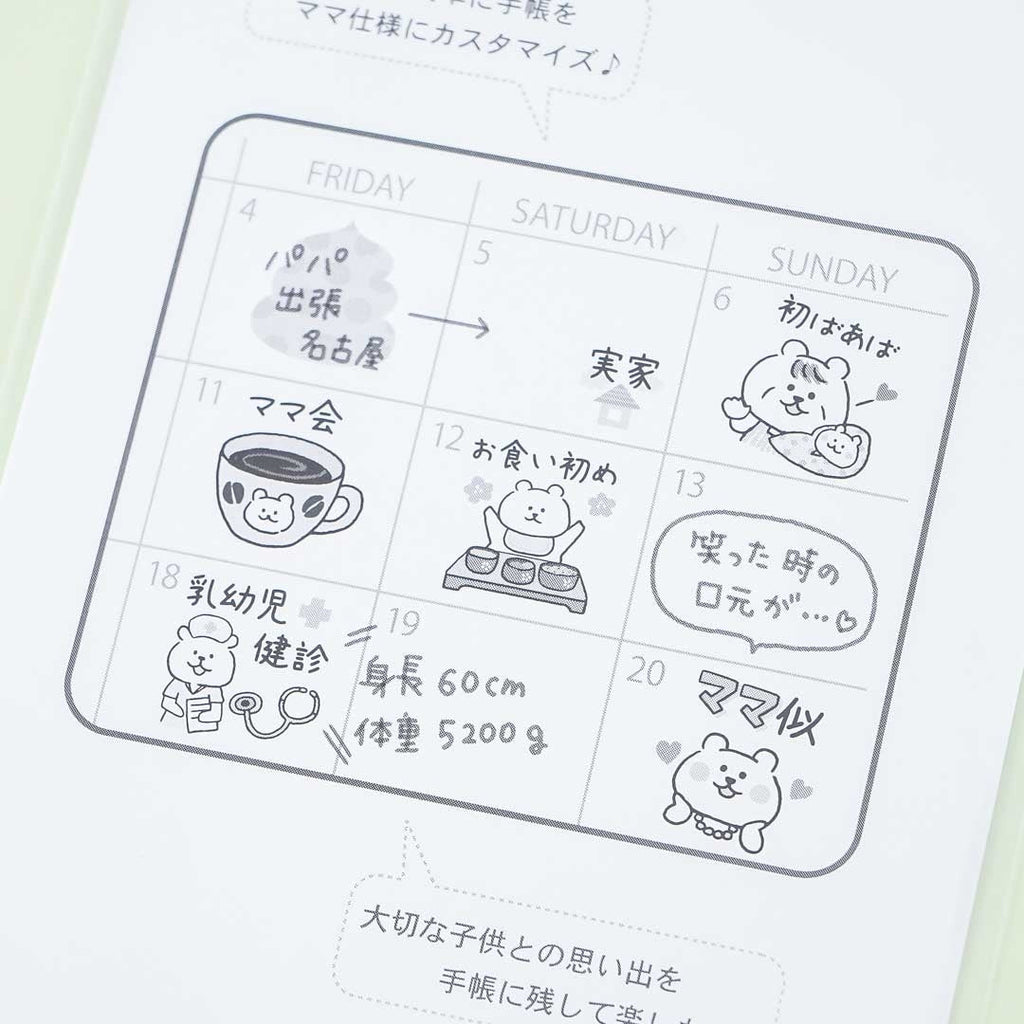 手帳を
ママ仕様にカスタマイズ♪
FRIDAY
SATURDAY
SUNDAY
4
パパ
出張
名古屋
5
実家
6
初ばあば
11
ママ会
12
お食い初め
13
笑った時の
口元が…♡
18
乳幼児
健診
19
身長 60cm
体重 5200g
20
ママ似
大切な子供との思い出を
手帳に残して楽し